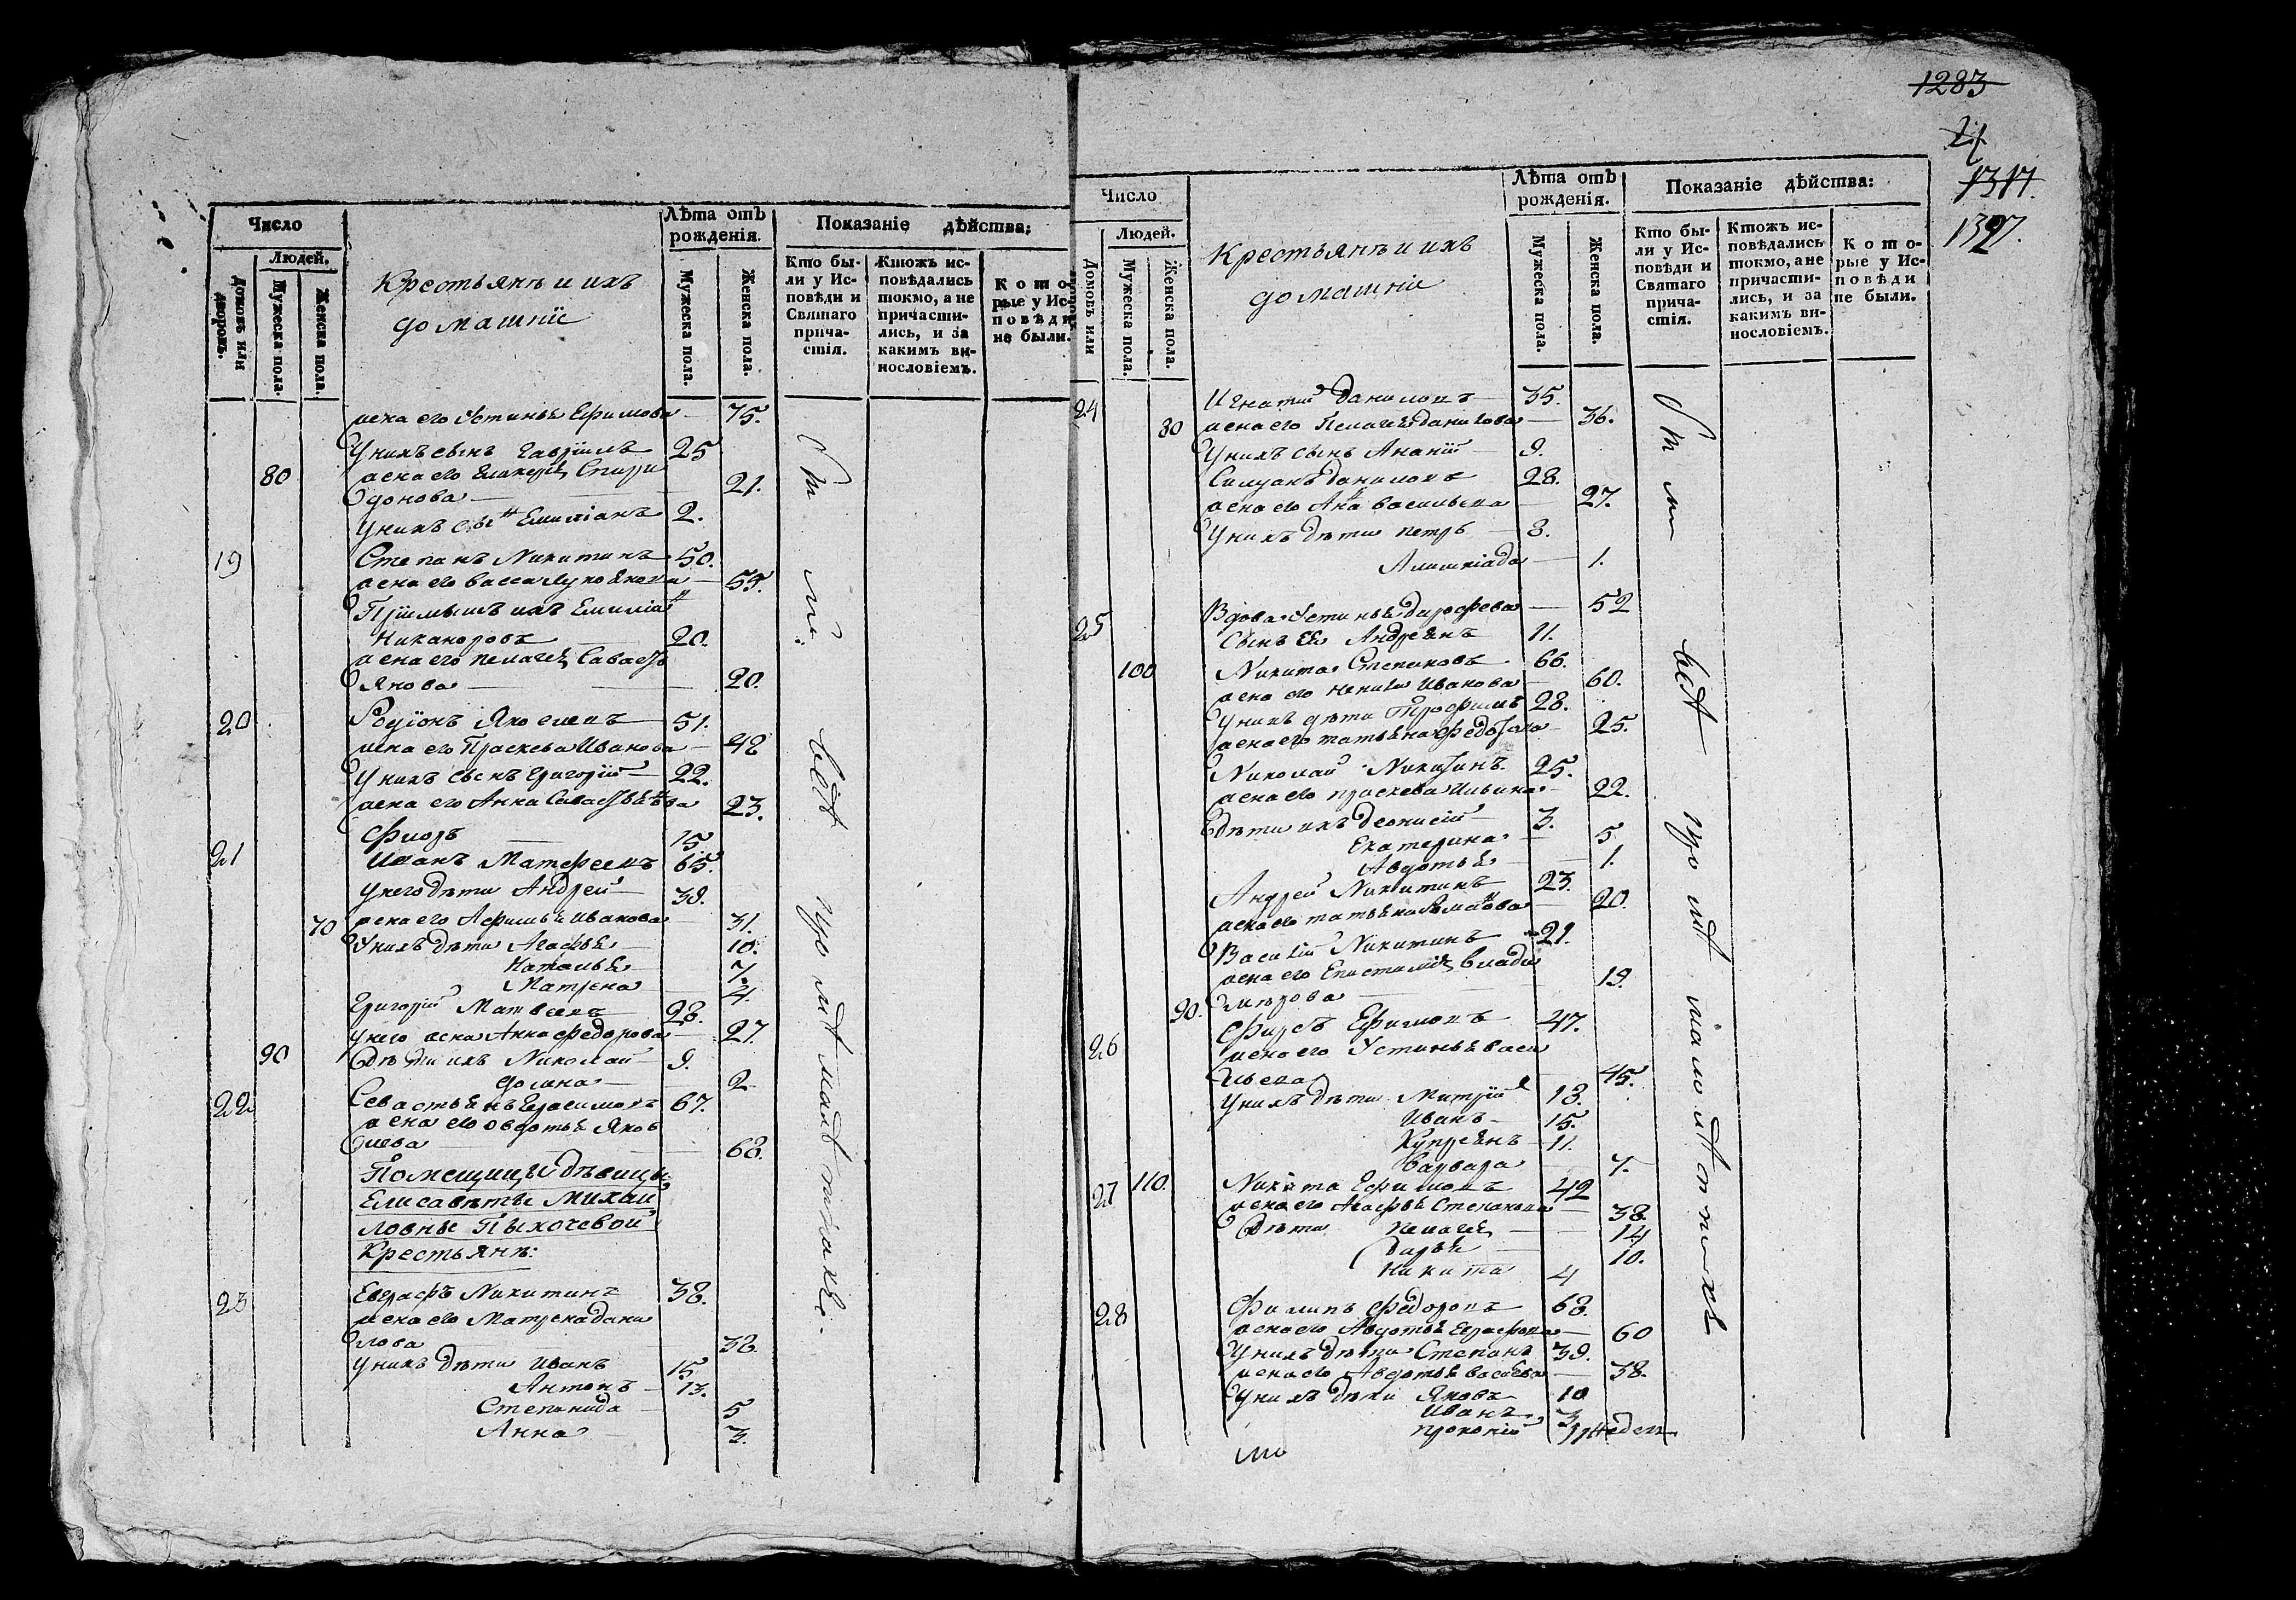 Число
Людей.
Домовъ или дворовъ.
Мужеска пола.
Женска пола.
Крестьянѣ и ихъ
домашніи
Лѣта отъ рожденія.
Мужеска пола.
Женска пола.
Показаніе дѣйства:
Кто были у Исповѣди и Святаго причастія.
Ктожъ исповѣдались токмо, а не причастились, и за какимъ винословіемъ.
Которые у Исповѣди не были.
жена его Устинья Ефимова — 75.
У нихъ сынъ Гавріилъ 25
80 жена его Гликерія Спири
донова — 21.
У нихъ сынъ Емиліанъ 2.
19 Степанъ Никитинъ 50.
жена его Васса Лукоянова —
Пріимышъ ихъ Емиліан
Никаноровъ 20.
жена его Пелагея Савастья
янова — 20.
20 Родіонъ Яковлевъ 51.
жена его Праскева Иванова — 48
У нихъ сынъ Григорій — 22.
жена его Анна Савастьянова 23.
Фирсъ 15
21 Иванъ Матфеевъ 65.
У него дѣти Андрей — 39.
70 жена его Афимья Иванова 31.
У нихъ дѣти Агафья — 10.
Наталья 7.
Матрена 4.
Григорій Матвеевъ 28.
У него жена Анна Федорова — 27.
90 Дѣти ихъ Николай — 9.
Домна — 2
22 Севастьянъ Герасимовъ 67.
жена его Овдотья Яков
лева 68.
Помещицы дѣвицы
Елисаветы Михаи
ловны Пыхочевой
Крестьянѣ:
23 Евграфъ Никитинъ 38.
жена его Матрена Дани
лова 38.
У нихъ дѣти Иванъ 15
Антонъ — 13.
Степанида — 5
Анна — 3.
Были вси
1283
1317.
1327.
Число
Людей.
Домовъ или
Мужеска пола.
Женска пола.
Крестьянѣ и ихъ
домашніи
Лѣта отъ рожденія.
Мужеска пола.
Женска пола.
Показаніе дѣйства:
Кто были у Исповѣди и Святаго причастія.
Ктожъ исповѣдались токмо, а не причастились, и за какимъ винословіемъ.
Которые у Исповѣди не были.
24 Игнатій Даниловъ — 35.
80 жена его Пелагея Данилова — 36.
У нихъ сынъ Ананій — 9.
Силуанъ Даниловъ 28.
жена его Анна Васильева — 27.
У нихъ дѣти Петръ — 3.
Алимпіада — 1.
25 Вдова Устинья Дорофева — 52
Сынъ ея Андреянъ 11.
100 Никита Степановъ 66.
жена его Ненила Иванова — 60.
У нихъ дѣти Трофимъ 28.
жена его Татьяна Федотова — 25.
Николай Никитинъ. 25.
жена его Праскева Ильина — 22.
Дѣти ихъ Деонисій — 3.
Екатерина — 5
Авдотья — 1.
Андрей Никитинъ 23.
жена его Татьяна Романова — 20.
Василій Никитинъ — 21.
жена его Епистимія Влади
90. мирова 19.
26 Фирсъ Ефимовъ 47.
жена его Устинья Васи
льева 45.
У нихъ дѣти Митрій 18.
Иванъ — 15.
Купреянъ — 11.
Варвара 7.
27 110. Никита Ефимовъ 42
жена его Агафья Степанова — 38.
Дѣти Пелагея — 14
Дарья — 10.
Никита 4
28 Филипъ Федоровъ 68.
жена его Авдотья Евграфова — 60
У нихъ дѣти Степанъ 39.
жена его Авдотья Васильева — 38.
У нихъ дѣти Яковъ 10
Иванъ 3
Прокопій недел